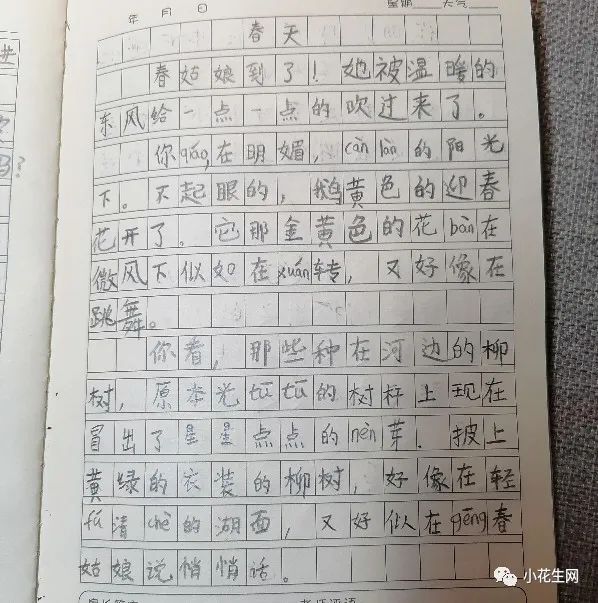 年 月 日 星期 天气
春天
春姑娘到了！她被温暖的
东风给一点一点的吹过来了。
你qiáo,在明媚，càn làn的阳光
下。不起眼的，鹅黄色的迎春
花开了。它那金黄色的花bàn在
微风下似如在xuán转，又好像在
跳舞。
你看，那些种在河边的柳
树，原本光tū tū的树杆上现在
冒出了星星点点的nèn芽．披上
黄绿的衣装的柳树，好像在轻
fú清chè的湖面，又好似在gēng春
姑娘说悄悄话。
吗？
小花生网